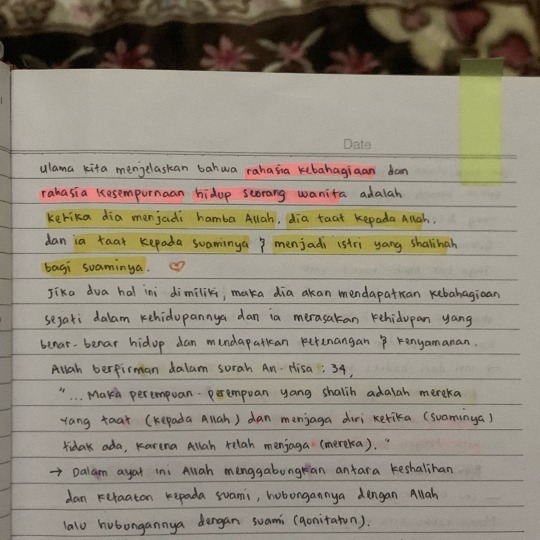 Date
Ulama kita menjelaskan bahwa rahasia kebahagiaan dan
rahasia kesempurnaan hidup seorang wanita adalah
ketika dia menjadi hamba Allah, dia taat kepada Allah,
dan ia taat kepada suaminya & menjadi istri yang shalihah
bagi suaminya. ♡
Jika dua hal ini dimiliki, maka dia akan mendapatkan kebahagiaan
sejati dalam kehidupannya dan ia merasakan kehidupan yang
benar-benar hidup dan mendapatkan ketenangan & kenyamanan.
Allah berfirman dalam surah An-Nisa : 34,
"... Maka perempuan-perempuan yang shalih adalah mereka
yang taat (kepada Allah) dan menjaga diri ketika (suaminya)
tidak ada, karena Allah telah menjaga (mereca)."
→ Dalam ayat ini Allah menggabungkan antara keshalihan
dan ketaatan kepada suami, hubungannya dengan Allah
lalu hubungannya dengan suami (qonitatun).